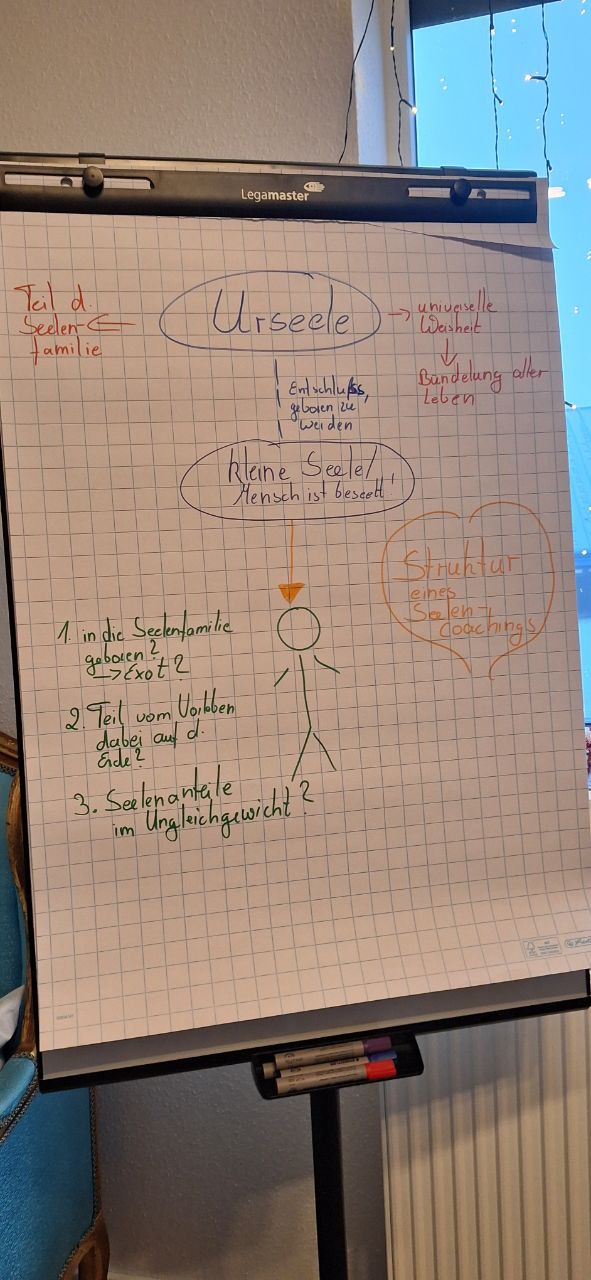 Legamaster
Teil d.
Seelen-
familie
Urseele
universelle
Weisheit
Bündelung aller
Leben
Entschluss,
geboren zu
werden
kleine Seele/
Mensch ist beseelt!
Struktur
eines
Seelen-
Coachings
1. in die Seelenfamilie
geboren?
→ Exot?
2. Teil vom Vorleben
dabei auf d.
Erde?
3. Seelenanteile
im Ungleichgewicht?